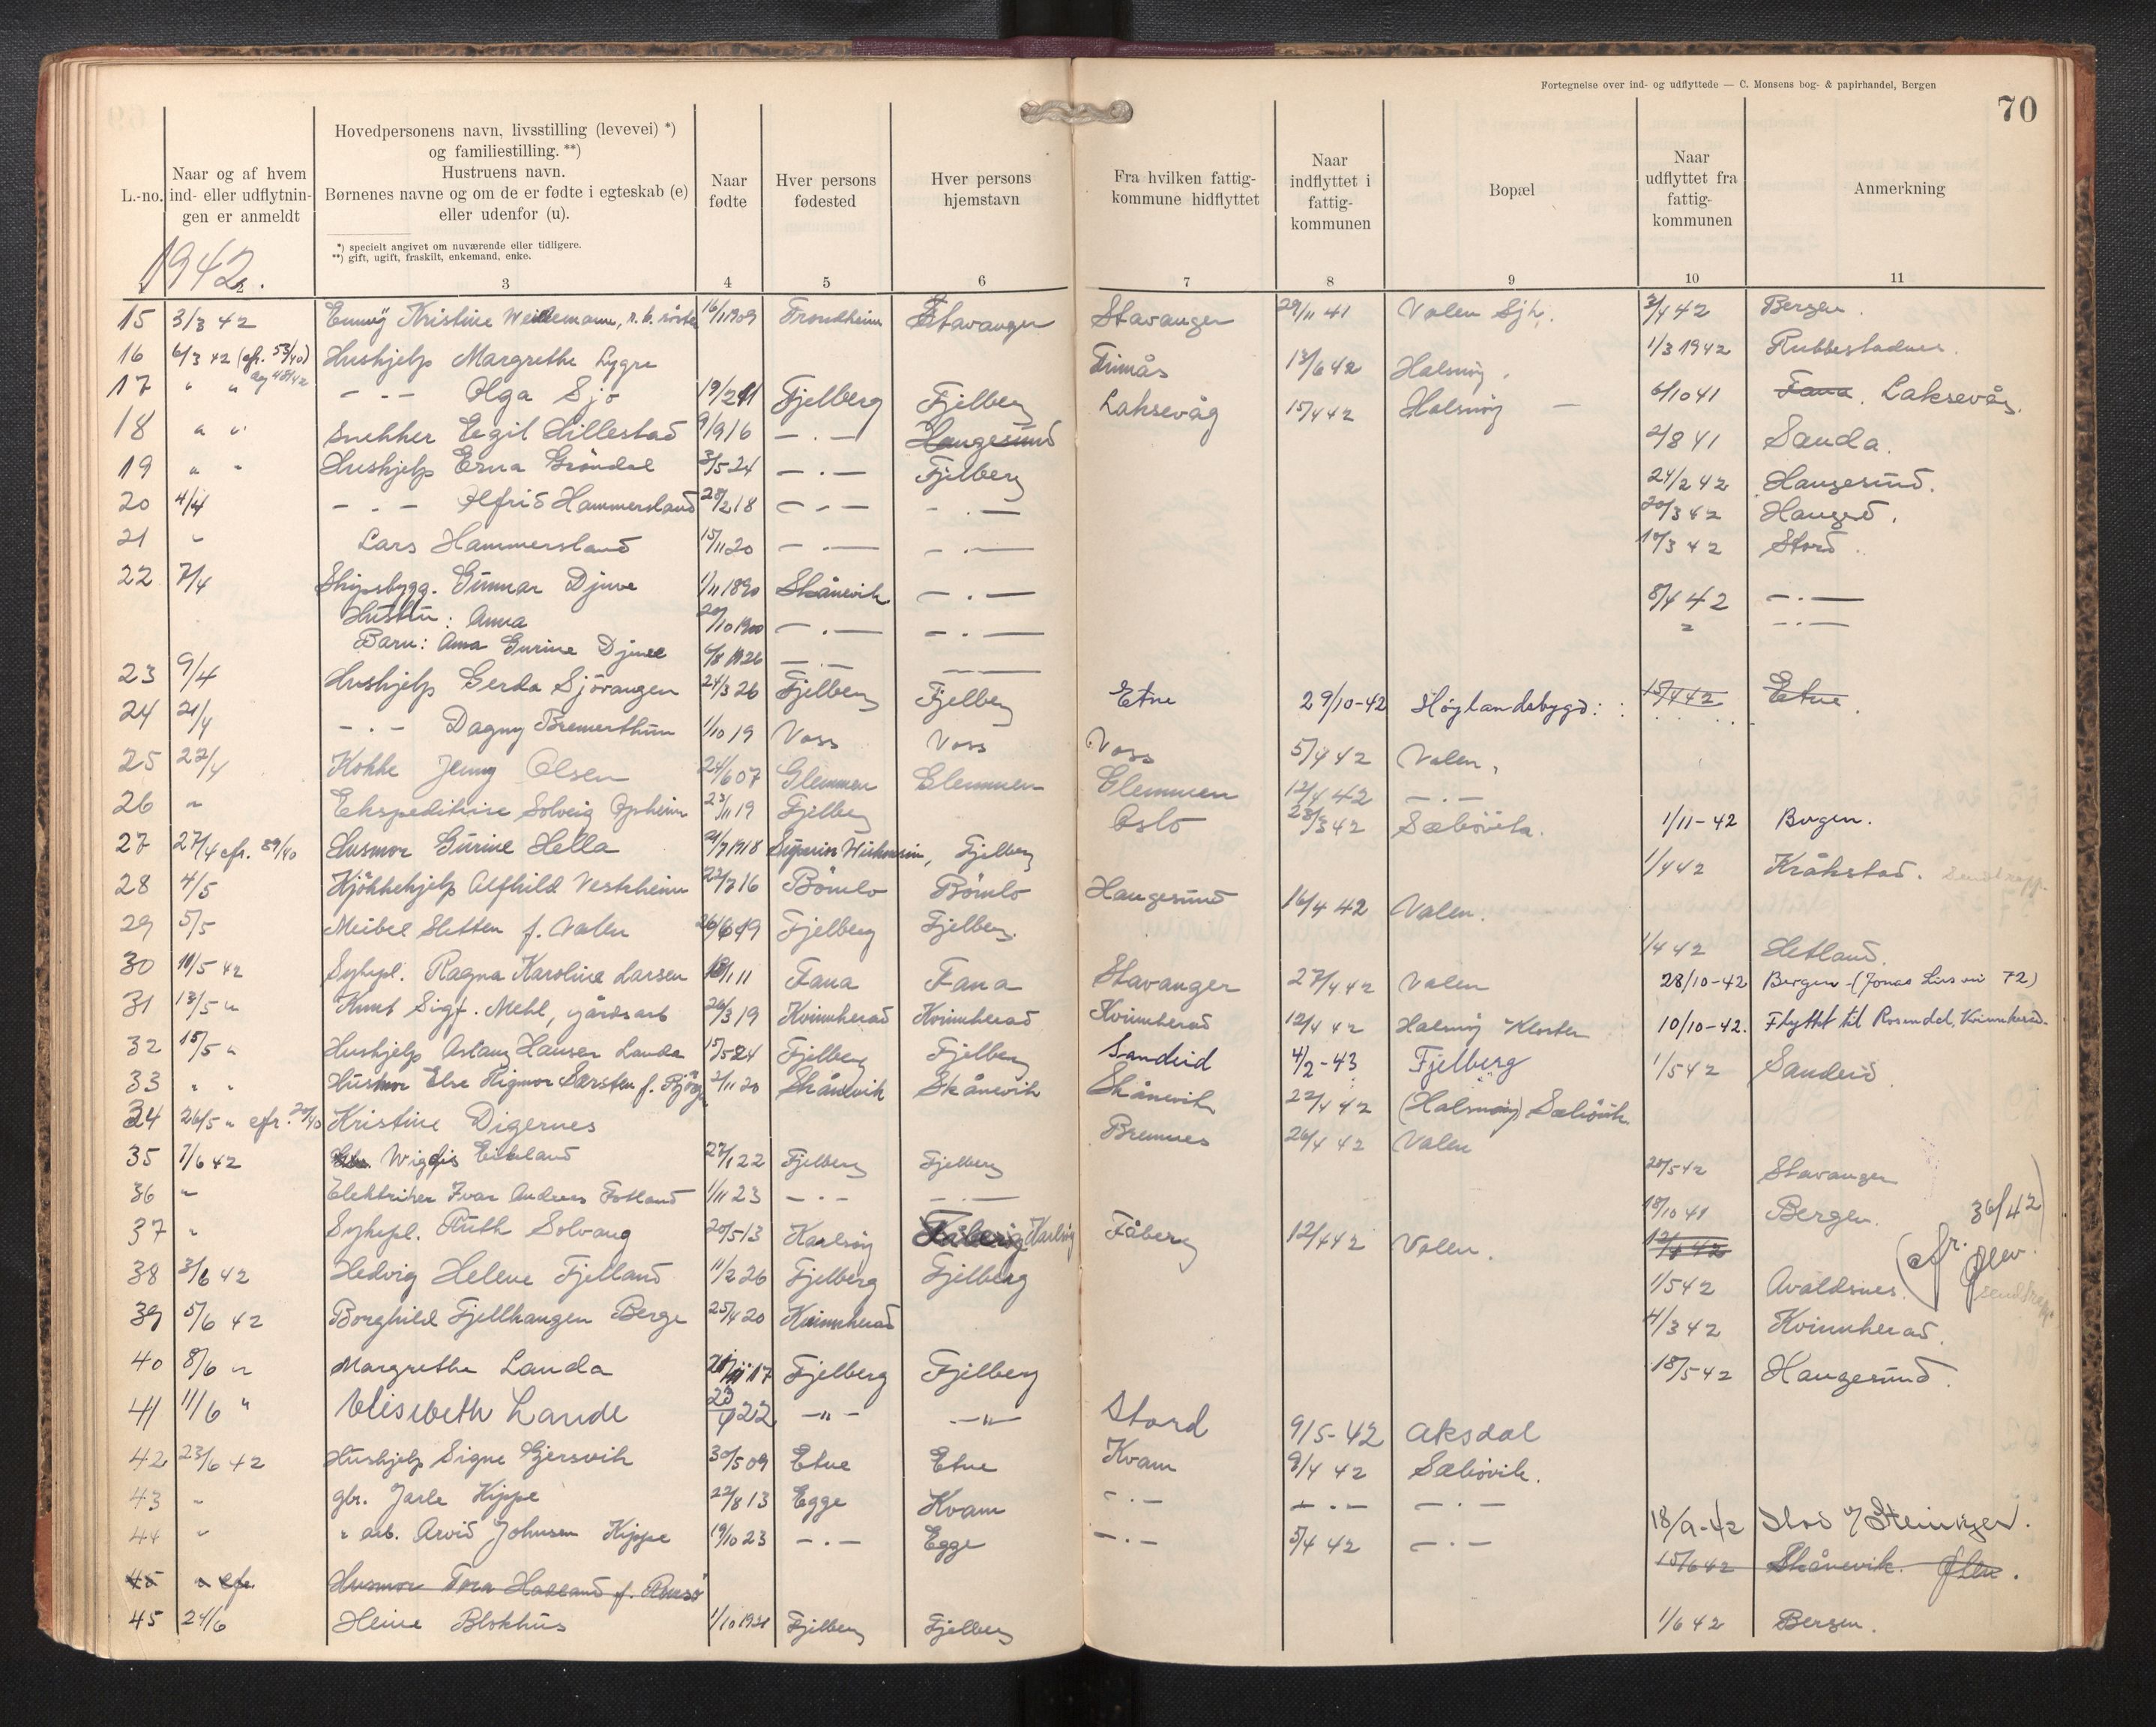 Fortegnelse over ind- og udflyttede — C. Monsens bog- & papirhandel, Bergen
70
L.-no.
Naar og af hvem ind- eller udflytnin-gen er anmeldt
Hovedpersonens navn, livsstilling (levevei) *)
og familiestilling. **)
Hustruens navn.
Børnenes navne og om de er fødte i egteskab (e)
eller udenfor (u).
*) specielt angivet om nuværende eller tidligere.
**) gift, ugift, fraskilt, enkemand, enke.
Naar fødte
Hver persons fødested
Hver persons hjemstavn
Fra hvilken fattig-kommune hidflyttet
Naar indflyttet i fattig-kommunen
Bopæl
Naar udflyttet fra fattig-kommunen
Anmerkning
1942.
3 4 5 6 7 8 9 10 11
15 3/3 42 Emmy Kristine Weidemann, 16/1 1909 Trondheim Stavanger Stavanger 29/11 41 Valen Sjh. 3/4 42 Bergen.
16 6/3 42 (cfr. 53/40) Hushjelp Margrethe Lygre Finnås 13/6 42 Halsnøy. 1/3 1942 Rubbestadnes.
17 " " og 48/42 — · — Olga Sjo 19/2 21 Fjelberg Fjelberg Laksevåg 15/4 42 Halsnøy — 6/10 41 Fana. Laksevåg.
18 " " Snekker Egil Hillestad 9/9 16 — · — Haugesund 2/8 41 Sanda.
19 " " Hushjelp Erna Gröndal 3/5 24 — · — Fjelberg 24/2 42 Haugesund.
20 4/4 — · — Alfrid Hammersland 28/2 18 — · — — · — 20/3 42 Haugesd.
21 " Lars Hammersland 15/11 20 — · — — · — 10/3 42 Stord.
22 7/4 Skipsbygg. Gunnar Djuve 1/11 1890 Skånevik — · — 8/4 42 — · —
Hustru: Anna 20/10 1900 — · — — · — " — · —
Barn: Anna Gurine Djuve 6/8 1926 — · — —
23 9/4 Hushjelp Gerda Sjövangen 24/3 26 Fjelberg Fjelberg Etne 29/10-42 Høylandsbygd: 15/4 42 Etne.
24 21/4 — · — Dagny Bremerthun 1/10 19 Voss Voss Voss 5/4 42 Valen.
25 22/4 Kokke Jenny Olsen 24/6 07 Glemmen Glemmen Glemmen 12/4 42 — · —
26 " Ekspeditrise Solveig Opheim 23/11 19 Fjelberg Oslo 28/3 42 Sæbövik. 1/11-42 Bergen.
27 27/4 cfr. 89/40 Husmor Gurine Hella 21/7 1918 Superior Wiskonsin, Fjelberg 1/4 42 Kråkstad.
28 4/5 Kjökkehjelp Alfhild Vestrheim 22/7 16 Bömlo Bömlo Haugesund 16/4 42 Valen.
29 5/5 Meibel Sletten f. Valen 26/6 19 Fjelberg Fjelberg. 1/4 42 Hetland.
30 11/5 42 Sykepl. Ragna Karoline Larsen 18/1 11 Fana Fana Stavanger 27/4 42 Valen 28/10-42 Bergen - (Jonas Lies vei 72)
31 13/5 " Knut Sigf. Mehl, gårdsarb 26/3 19 Kvinnherad Kvinnherad Kvinnherad 12/4 42 Halsnöy Kloster 10/10-42. Flyttet til Rosendal, Kvinnherad.
32 15/5 " Hushjelp Aslaug Hauser Landa 15/5 24 Fjelberg Fjelberg Sandeid 4/2-43 Fjelberg 1/5 42 Sandeid.
33 " " Husmor Else Rigmor Sarsten f. 2/11 20 Skånevik Skånevik Skånevik 22/4 42 (Halsnöy) Sæbövik.
34 26/5 " cfr. 20/40 Kristine Digernes Bremnes 26/4 42 Valen
35 7/6 42 Wigdis Eikeland 27/1 22 Fjelberg Fjelberg 20/5 42 Stavanger
36 " Elektriker Ivar Andreas Fotland 1/11 23 — · — — · — 18/10 41 Bergen. 36/42
37 " Sykepl. Ruth Solvang 20/5 13 Karlsöy Karlsöy Fåberg 12/4 42 Valen. 12/4 42 (cfr.
38 3/6 42 Hedvig Helene Fjelland 11/2 26 Fjelberg Fjelberg 1/5 42 Avaldsnes.
39 5/6 42 Borghild Fjellhaugen Berge 25/4 20 Kvinnherad 4/3 42 Kvinnherad.
40 8/6 " Margrethe Landa 17 Fjelberg Fjelberg 18/5 42 Haugesund.
41 11/6 " Elisabeth Lande 23/4 22 — " — — " — Stord 9/5-42 Aksdal
42 23/6 42 Hushjelp Signe Gjersvik 30/5 09 Etne Etne Kvam 9/4 42 Sæbövik.
43 " gbr. Jarle Kippe 22/8 13 Egge Kvam — · — — · — — · —
44 " " arb. Arvid Johnsen Kippe 19/10 23 — · — Egge — · — 5/4 42 — · — 18/9-42 Steinkjer.
45 " cfr. Husmor Tora Haaland f. 15/6 42 Skånevik. Ølen.
45 24/6 Heine Blokhus 1/10 1921 Fjelberg Fjelberg 1/6 42 Bergen.